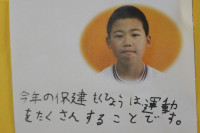 今年の保建もくひょうは運動
をたくさんすることです。